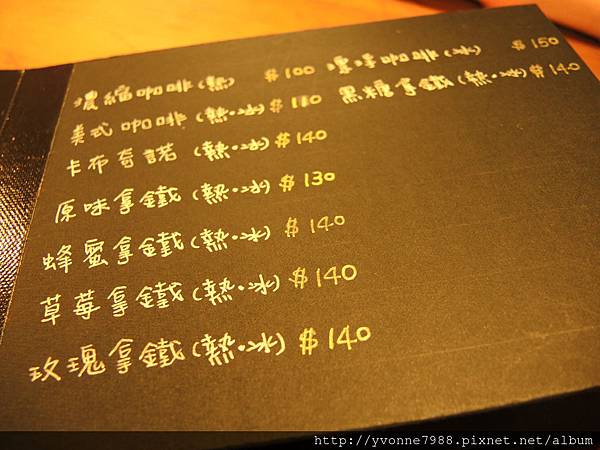 濃縮咖啡(熱) $100 咖啡(冰) $150
美式咖啡(熱·冰) $110 黑糖拿鐵(熱·冰) $140
卡布奇諾(熱·冰) $140
原味拿鐵(熱·冰) $130
蜂蜜拿鐵(熱·冰) $140
草莓拿鐵(熱·冰) $140
玫瑰拿鐵(熱·冰) $140
http://yvonne7988.pixnet.net/album